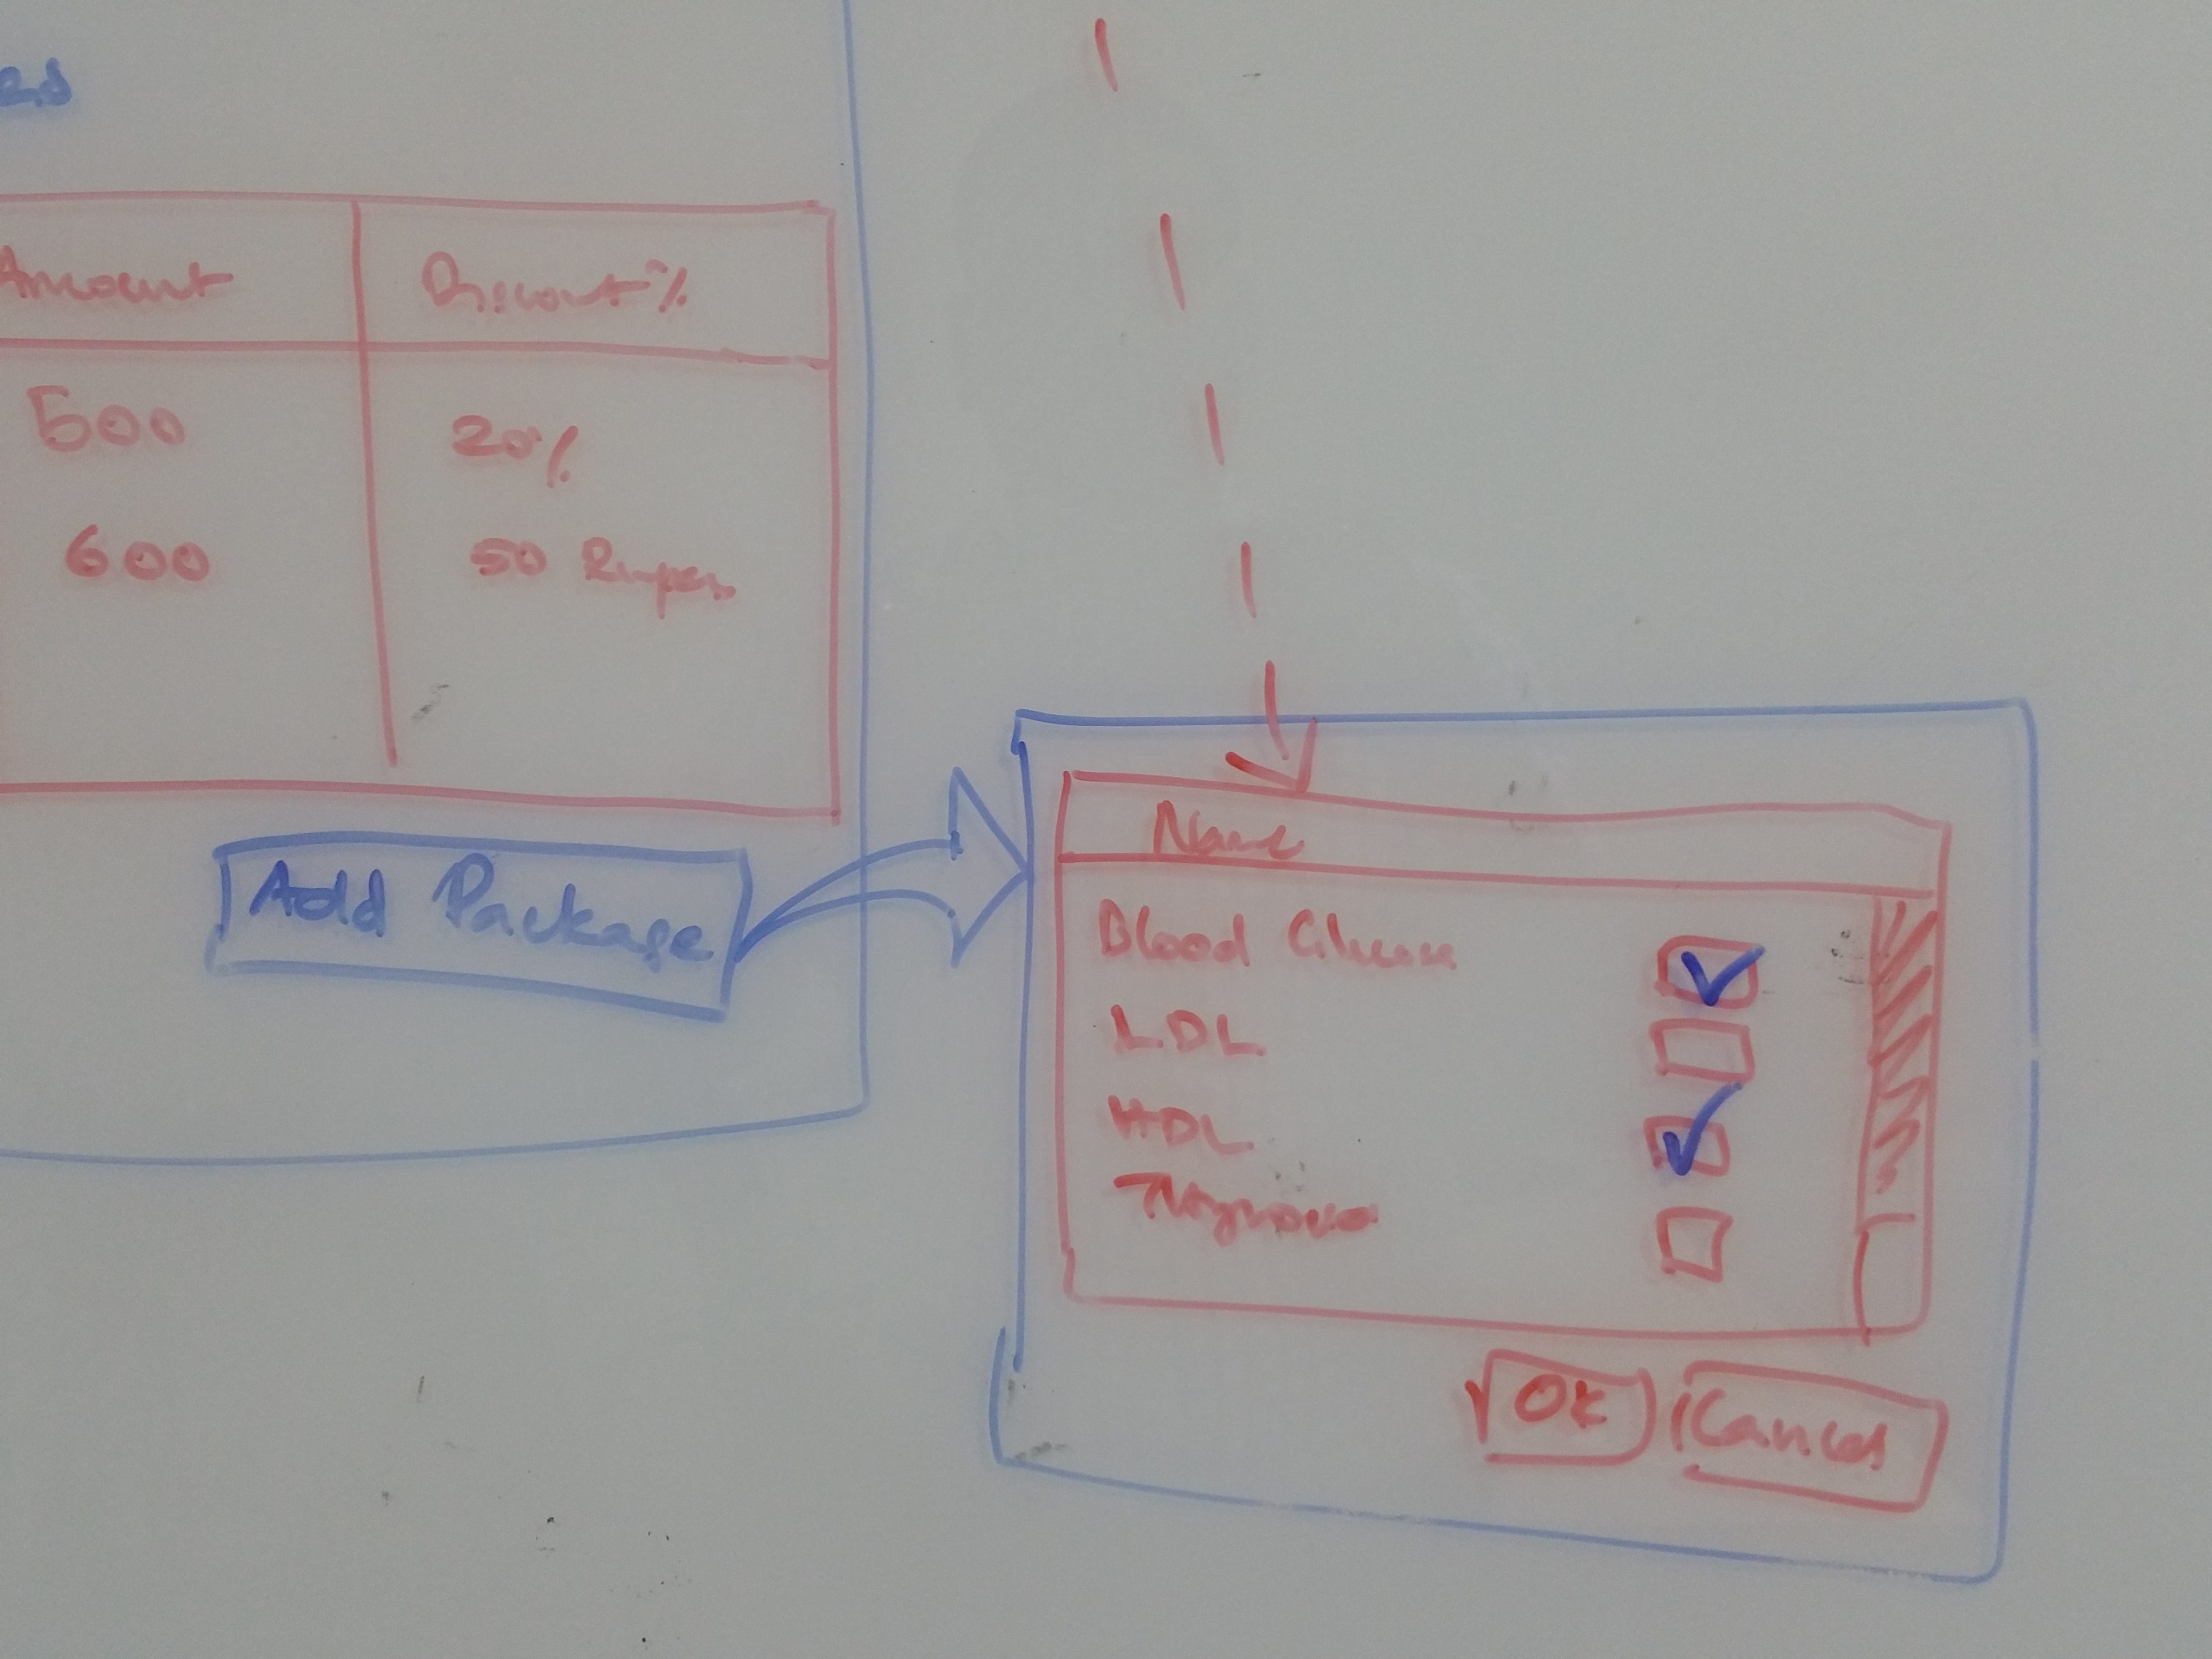 Amount Discount %
500 20%
600 50 Rupees
Add Package
Name
Blood Glucose
LDL
HDL
OK Cancel